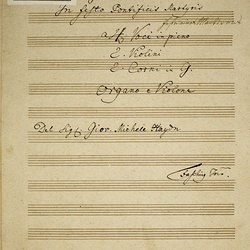 In festo Pontificis Martyris
Voci in pieno
2. Violini
2. Corni in G.
Organo e Violone
Del Sig Giov. Michele Haydn